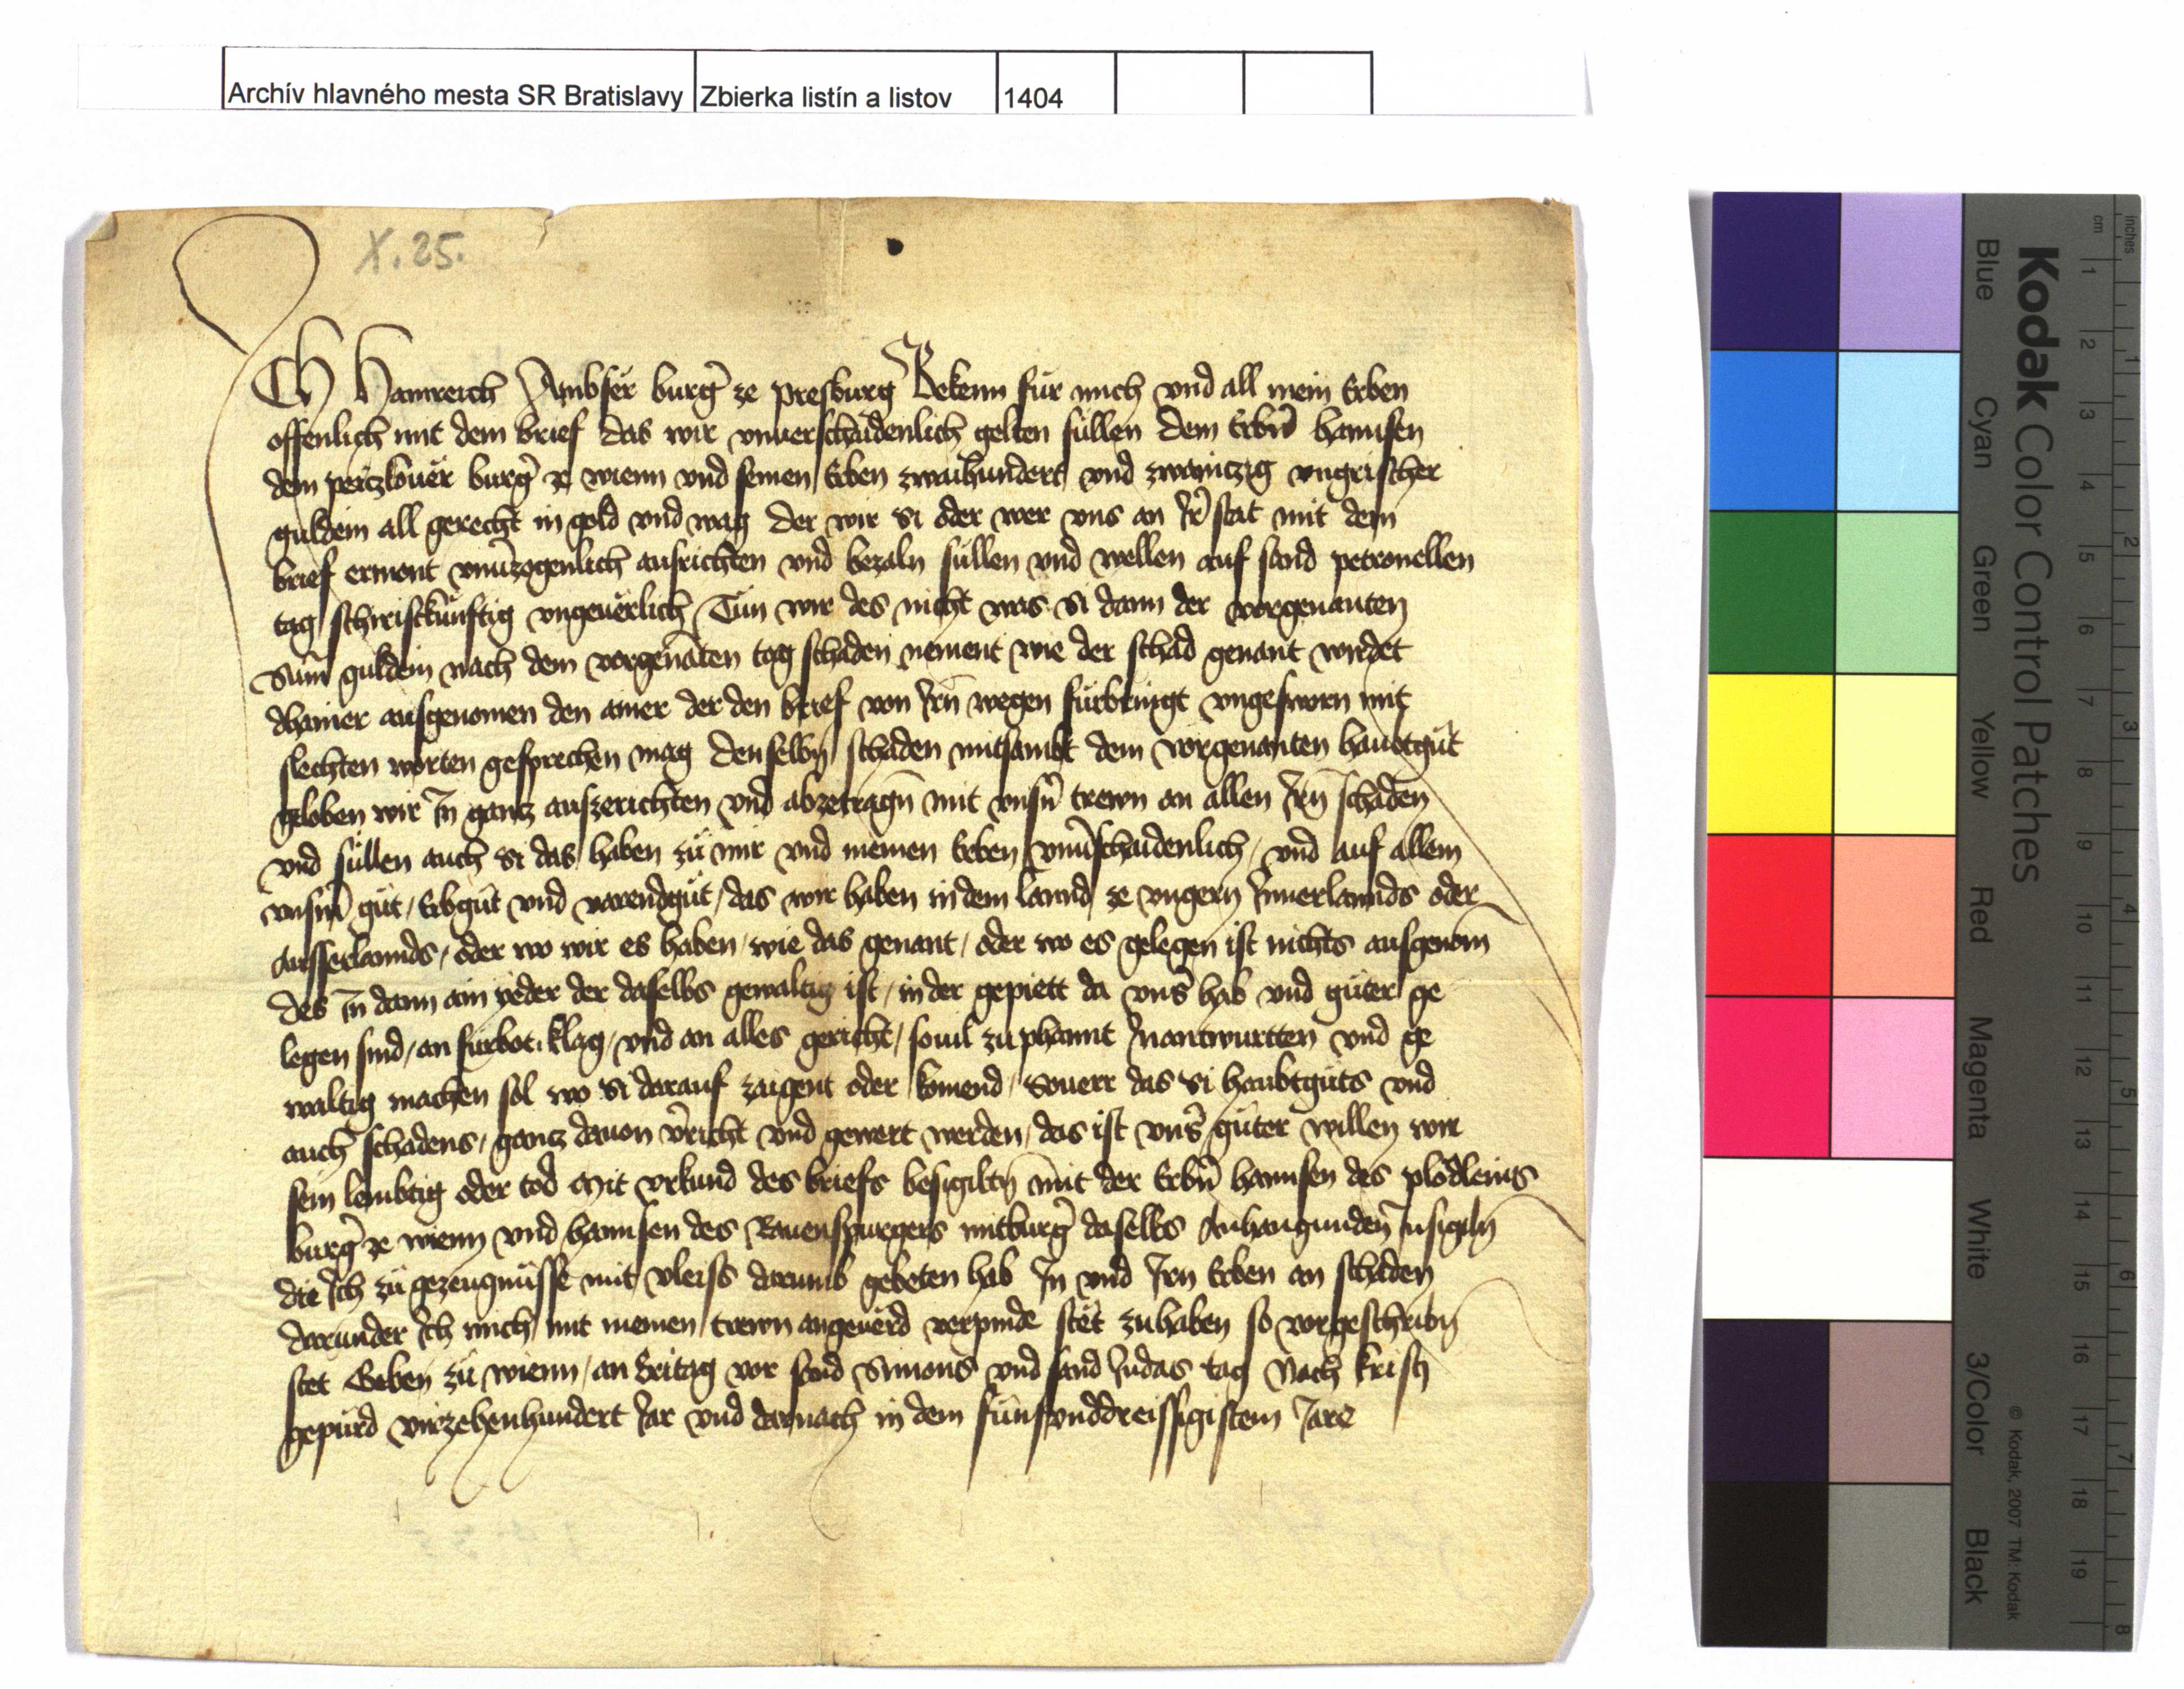 Archív hlavného mesta SR Bratislavy Zbierka listín a listov 1404
X. 25.
Ich Hainreich Ambser burgr ze Presburg Bekenn für mich vnd all mein Erben
offenlich mit dem brief das wir vnuerschaidenlich gelten süllen dem Erbrn hannsen
dem perczkouer burgr ze wienn vnd seinen Erben zwaihundert vnd zwainczig vngrischer
guldein all gerecht in gold vnd wag der wir si oder wer vns an Irr stat mit dem
brief ermont vnuerzogenlich ausrichten vnd bezaln süllen vnd wellen auf sand petronellen
tag schiristkünftig vngeuerlich Tün wir des nicht was si dann der vorgenanten
Sum guldein nach dem vorgenaten tag schaden nement wie der schad genant wirdet
dhainer ausgenomen den ainer der den brief von Irn wegen fürbringt vngesworn mit
slechten worten gesprechen mag denselbn schaden mitsambt dem vorgenanten haubtgüt
geloben wir In gancz auszerichten vnd abzetragn mit vnsn trewn an allen Irn schaden
vnd süllen auch si das haben zu mir vnd meinen Erben vnuerschaidenlich / vnd auf allem
vnserm güt / Erbgüt vnd varendgüt / das wir haben in dem lannd ze vngern Innerlannds oder
ausserlannds / oder wo wir es haben / wie das genant / oder wo es gelegen ist nichts ausgenom
des In dann ain yeder der daselbs gewaltig ist / in der gepiett da vnsr hab vnd güter ge
legen sind / an fürbot klag / vnd an alles gericht / souil zu phannt Inantwurtten vnd ge
waltig machen sol wo si darauf zaigent oder komend / Souerr das si haubtguts vnd
auch schadens / gancz dauon vericht vnd gewert werden / das ist vnsr güter willen wir
sein lembtig oder tod Mit vrkund des briefs besigiltn mit der Erbrn hannsen des plodleins
burgr ze wienn vnd hannsen des Rauenspurgers mitburgr daselbs Anhangunden Insigiln
die Ich zu gezeugnüsse mit vleiss darumb gebeten hab In vnd Irn Erben an schaden
darunder Ich mich mit meinen trewn angeuerd verpinde stet zuhaben so vorgeschribn
stet Geben zu wienn / an Eritag vor sand Simons vnd sand Judas tag Nach krists
gepurd vierzehenhundert Jar vnd darnach in dem fünfvnddreissigistem Jare
Kodak Color Control Patches
inches cm
Blue Cyan Green Yellow Red Magenta White 3/Color Black
1 2 3 4 5 6 7 8 9 10 11 12 13 14 15 16 17 18 19
1 2 3 4 5 6 7 8
© Kodak, 2007 TM: Kodak